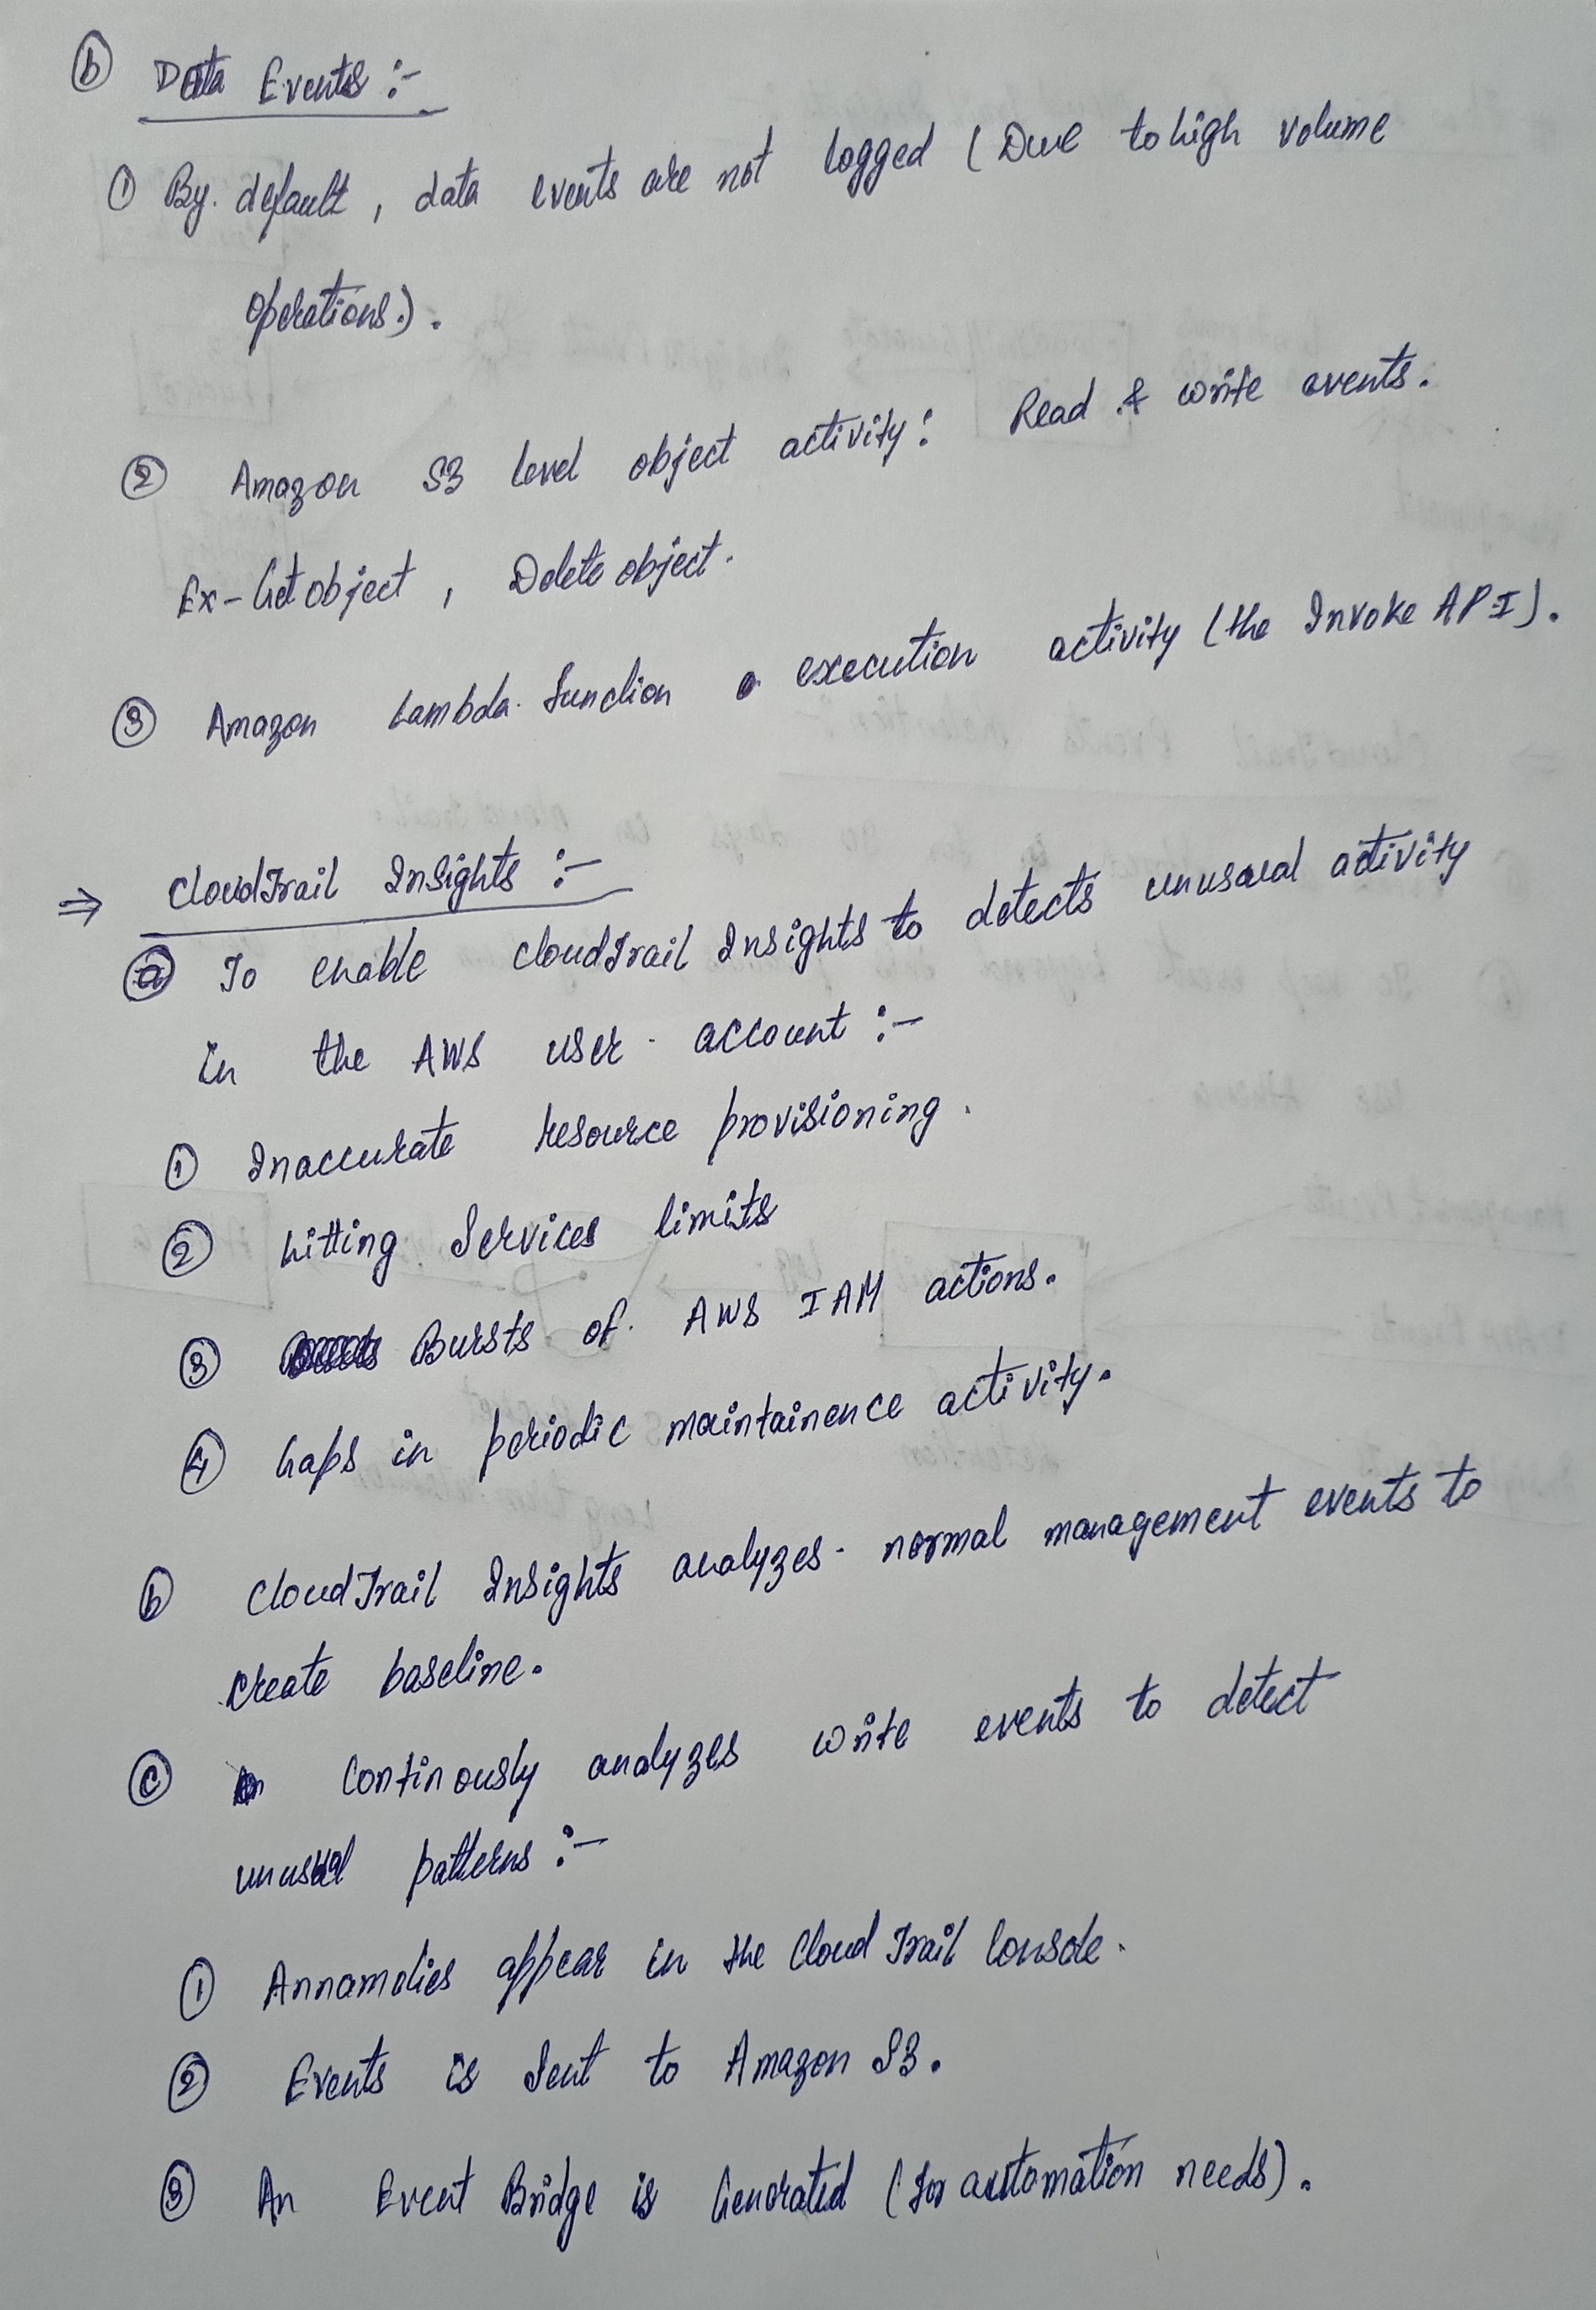 ⓑ Data Events :-
① By default, data events are not logged (Due to high volume
operations.).
② Amazon S3 level object activity: Read & write events.
Ex- Get object, Delete object.
③ Amazon Lambda function execution activity (the Invoke API).
⇒ CloudTrail Insights :-
ⓐ To enable CloudTrail Insights to detects unusual activity
in the AWS user account :-
① Inaccurate resource provisioning.
② hitting Services limits
③ Bursts of AWS IAM actions.
④ Gaps in periodic maintainence activity.
ⓑ CloudTrail Insights analyzes normal management events to
create baseline.
ⓒ Continously analyzes write events to detect
unusual patterns :-
① Annamolies appear in the Cloud Trail Console.
② Events is Sent to Amazon S3.
③ An Event Bridge is Generated (for automation needs).